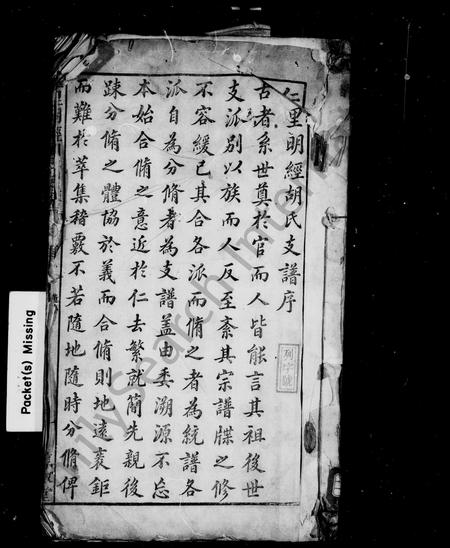 仁里明經胡氏支譜序
古者系世奠於官而人皆能言其祖後世
支派別以族而人反至紊其宗譜牒之修
不容緩已其合各派而脩之者為統譜各
派自為分脩者為支譜盖由委溯源不忘
本始合脩之意近於仁去繁就簡先親後
踈分脩之體協於義而合脩則地遠袤鉅
而難於萃集稽覈不若隨地隨時分脩俾
Packet(s) Missing